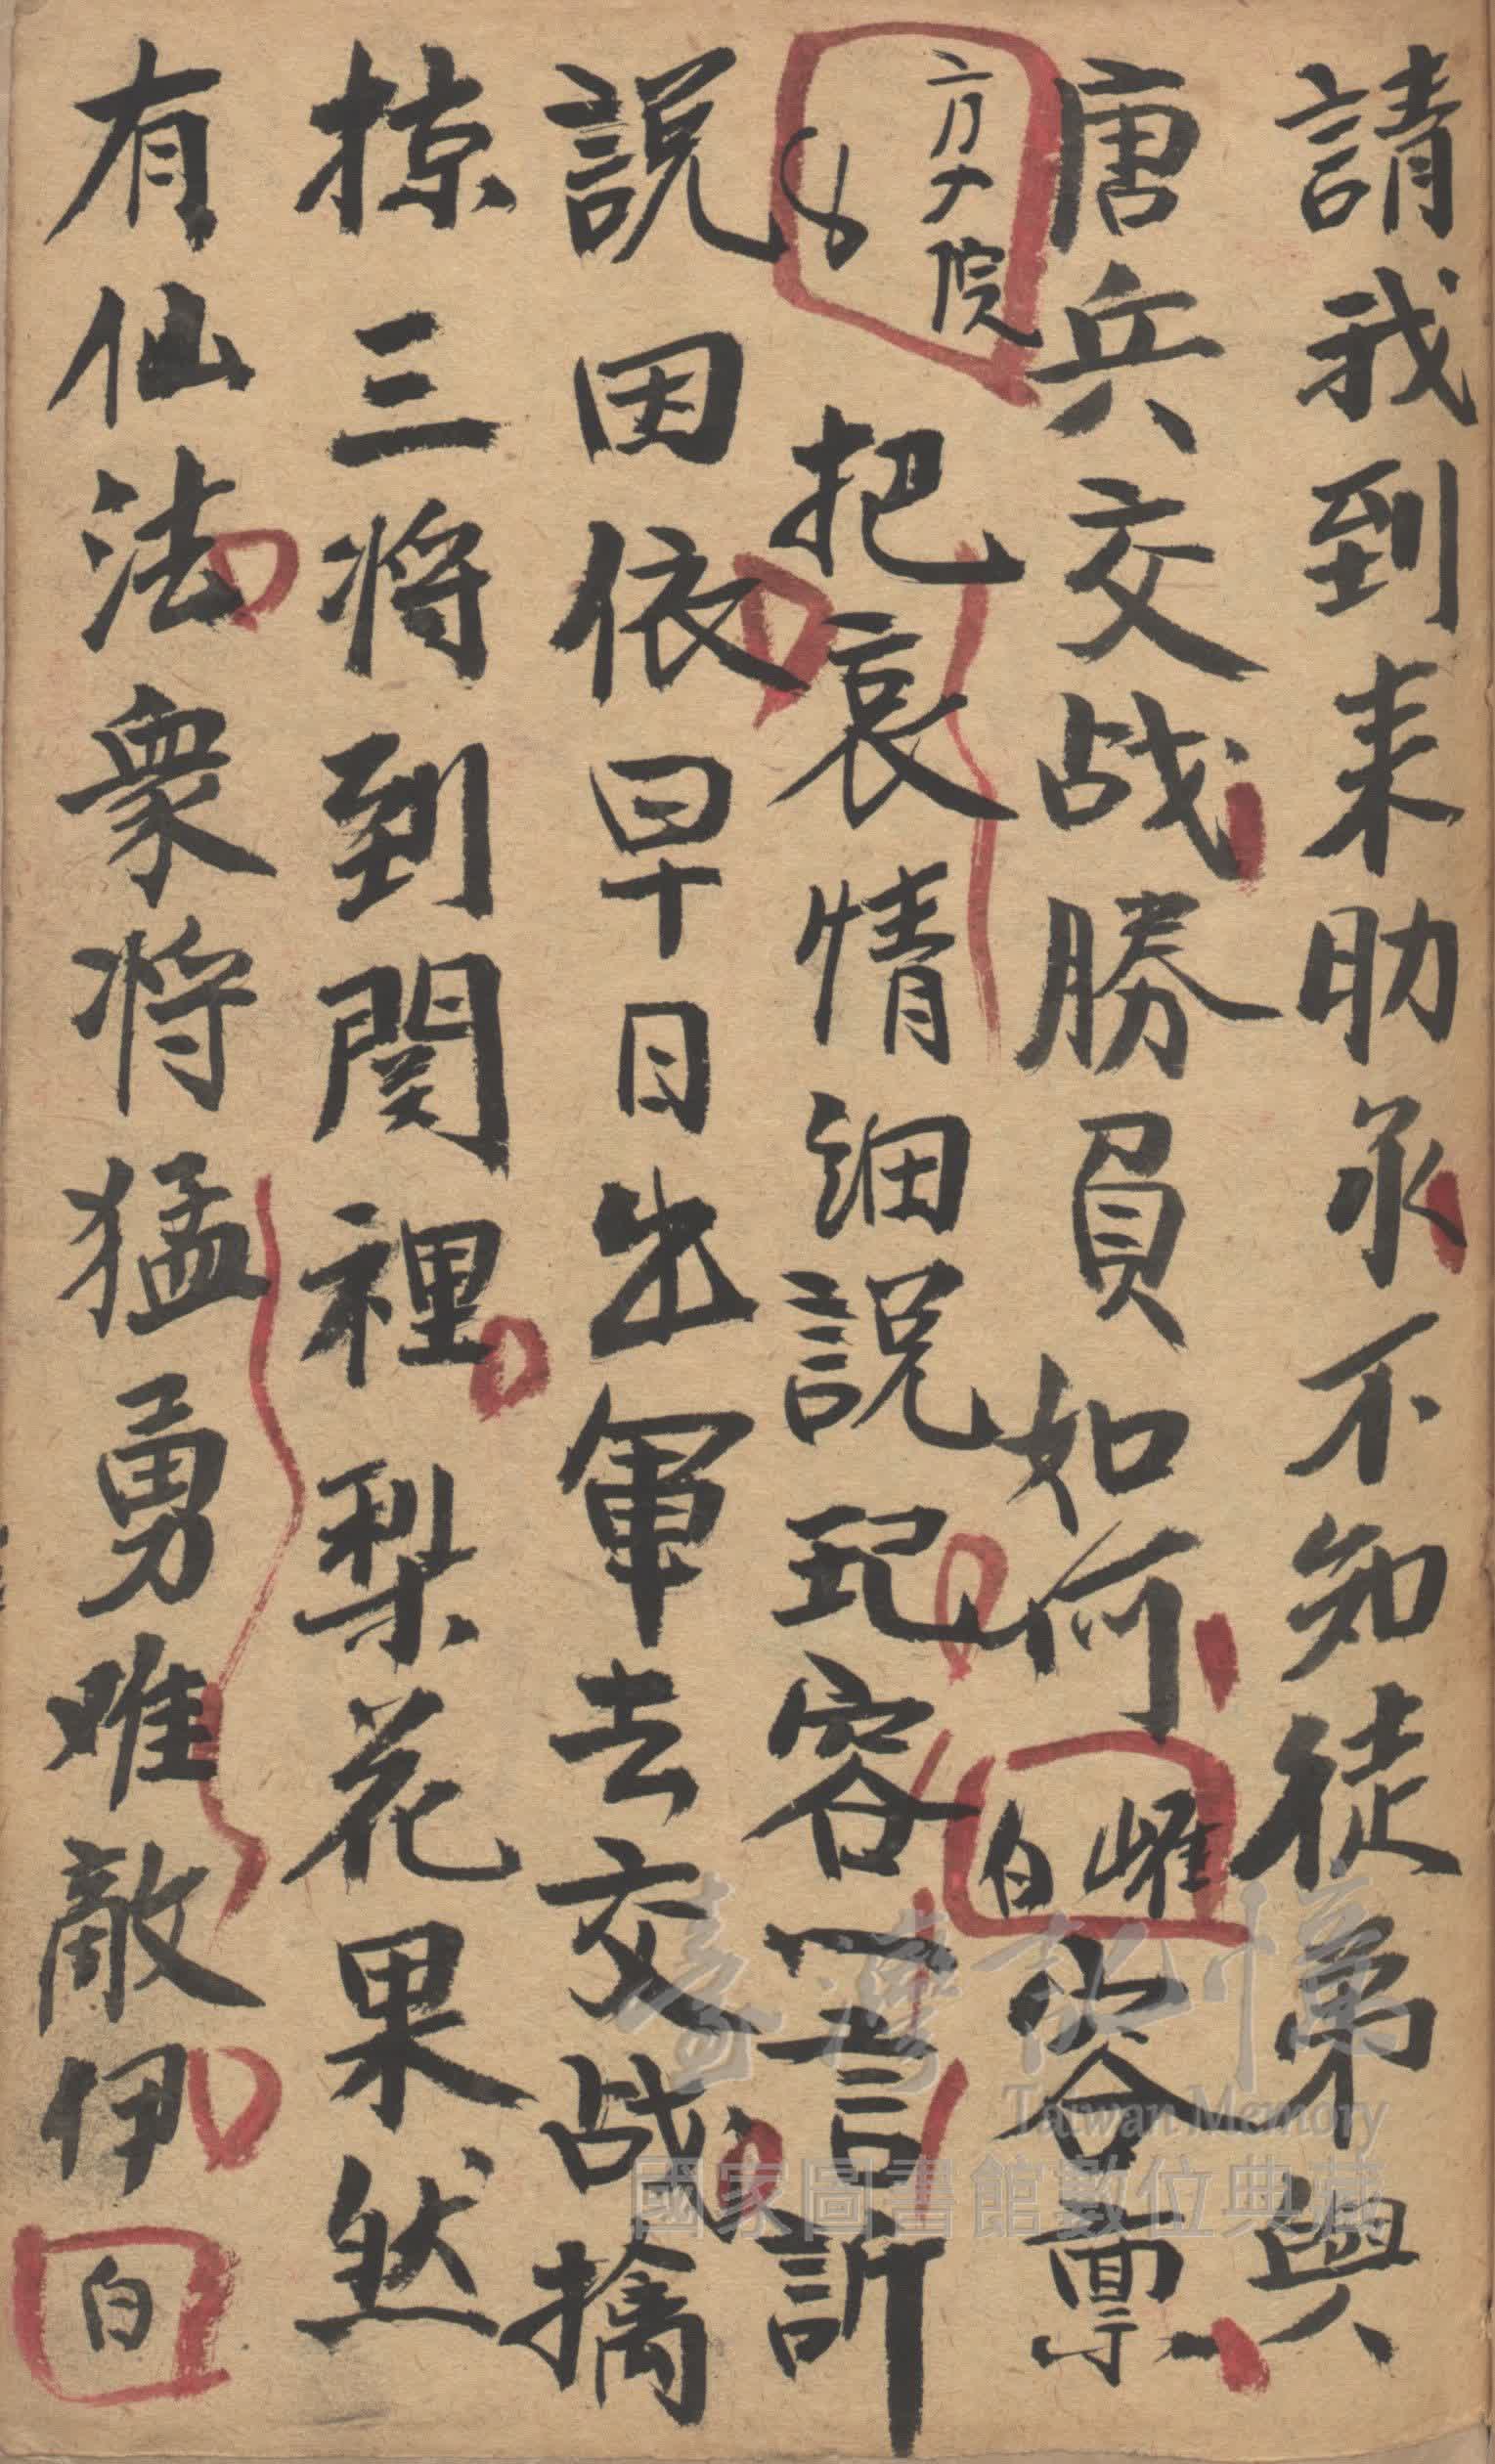 請我到来助承不知徒弟與
唐兵交战勝負如何 白 容禀
把哀情細説 容言訴
説因依早日出軍去交战擒
掠三将到関裡梨花果然
有仙法衆将猛勇难敵伊 白
臺灣記憶
Taiwan Memory
國家圖書館數位典藏